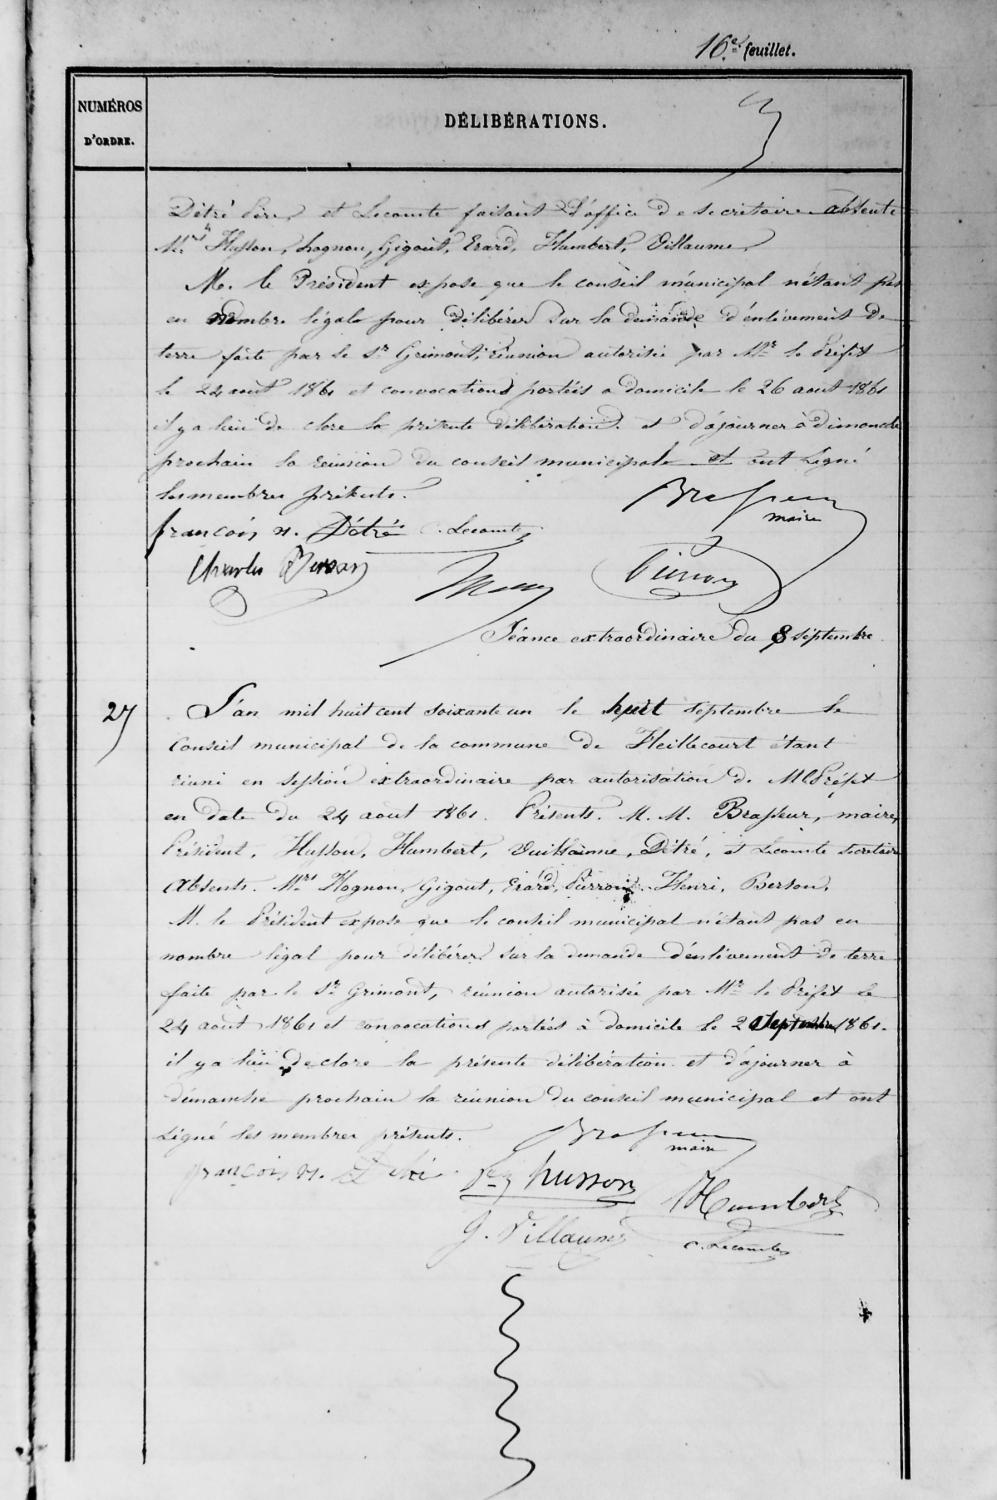 16.e feuillet.
NUMÉROS
D'ORDRE.
DÉLIBÉRATIONS.
Détré Père, et Lecomte faisant d'office de secrétaire absents
M.rs Husson, hognon, Gigout, Erard, Humbert, Villaume,
M. le Président expose que le conseil municipal n'étant pas
en nombre légale pour délibérer sur la demande d'enlèvement de
terre faite par le Sr Grimont, réunion autorisée par Mr le Préfet
le 24 aout 1861 et convocations portées a domicile le 26 aout 1861
il y a lieu de clore la présente délibération et d'ajourner à dimanche
prochain la réunion du conseil municipale et ont signé
les membres présents.
Brasseur
maire
françois n. Détré C. Lecomte
Charles Berson
Pierron
Séance extraordinaire du 8 septembre
27
L'an mil huit cent soixante un le huit septembre le
Conseil municipal de la commune de Heillecourt étant
réuni en session extraordinaire par autorisation de M le Préfet
en date du 24 aout 1861. Présents. M. M. Brasseur, maire,
Président, Husson, Humbert, Vuillaume, Détré, et Lecomte secrétaire
Absents. Mrs Hognon, Gigout, Erard, Pierron, Henri, Berson,
M. le Président expose que le conseil municipal n'étant pas en
nombre légal pour délibérer sur la demande d'enlèvement de terre
faite par le Sr Grimont, réunion autorisée par Mr le Préfet le
24 aout 1861 et convocations portées à domicile le 2 septembre 1861.
il y a lieu de clore la présente délibération et d'ajourner à
dimanche prochain la réunion du conseil municipal et ont
signé les membres présents.
Brasseur
maire
françois n. Détré husson Humbert
G. Villaume C. Lecomte